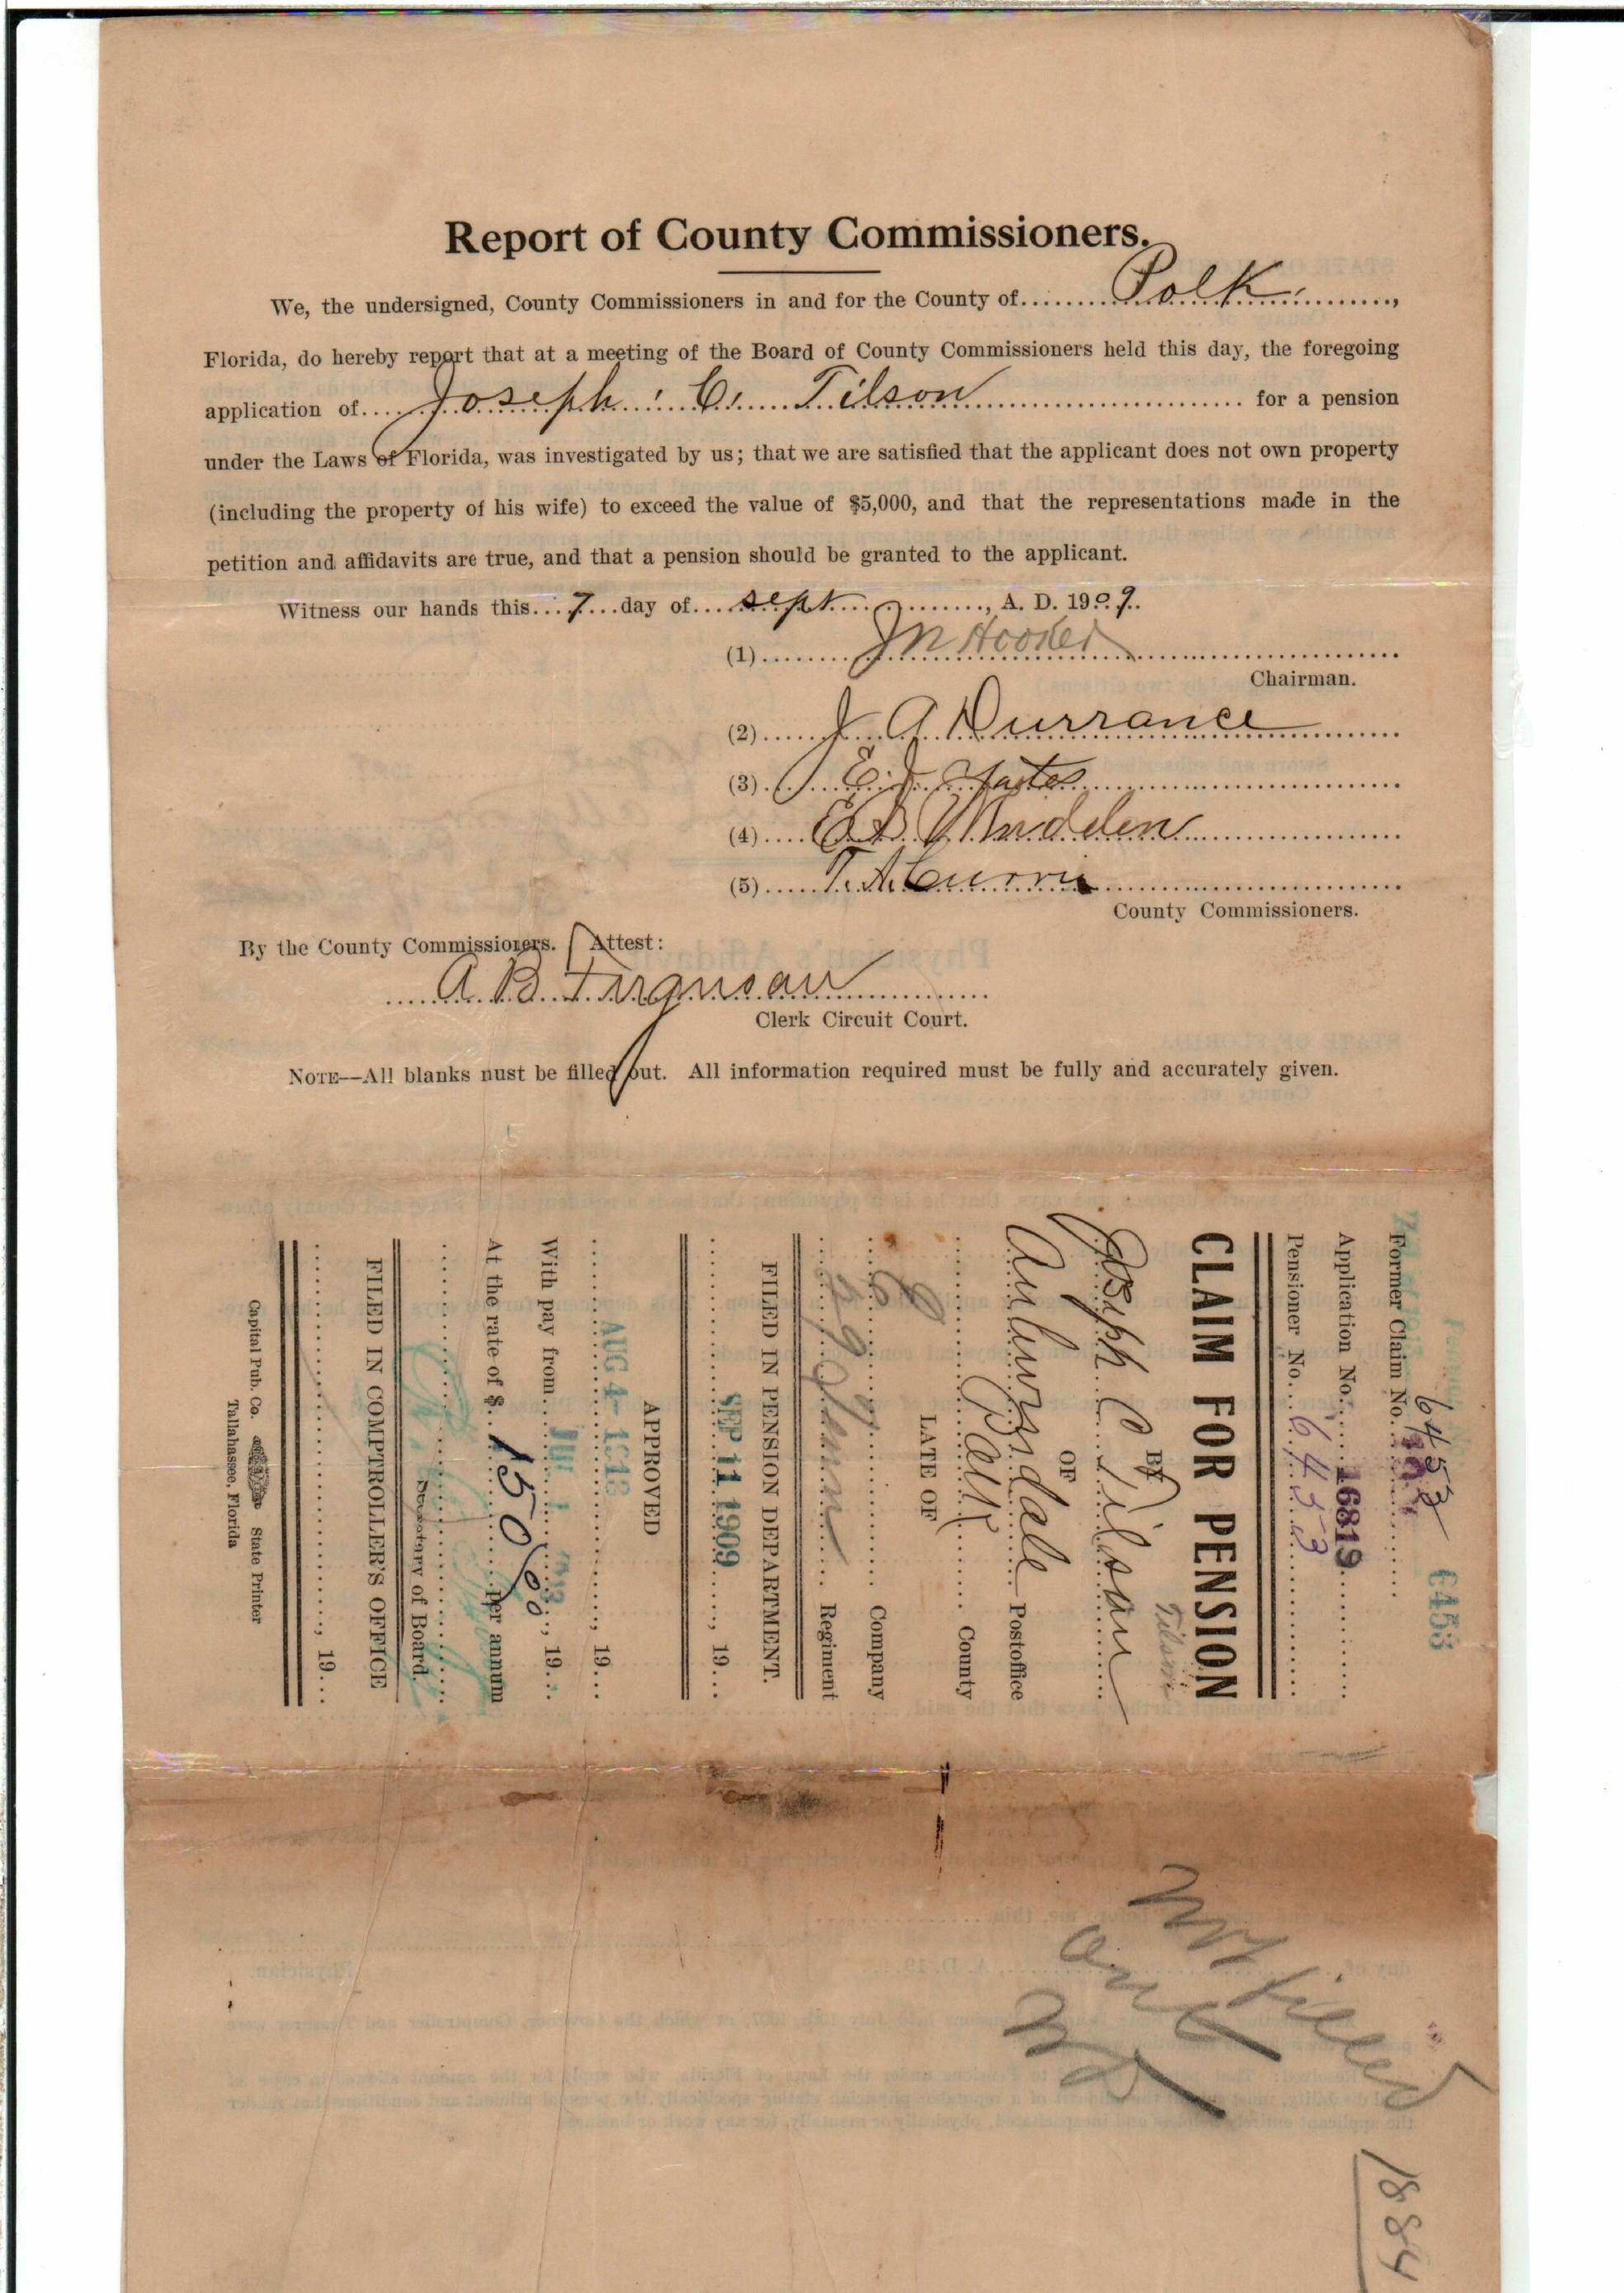 Report of County Commissioners.
We, the undersigned, County Commissioners in and for the County of........Polk........,
Florida, do hereby report that at a meeting of the Board of County Commissioners held this day, the foregoing
application of....Joseph C. Tilson.... for a pension
under the Laws of Florida, was investigated by us; that we are satisfied that the applicant does not own property
(including the property of his wife) to exceed the value of $5,000, and that the representations made in the
petition and affidavits are true, and that a pension should be granted to the applicant.
Witness our hands this....7...day of....sept............, A. D. 1909.
(1)........J N Hooker
Chairman.
(2)......J A Durrance
(3)......E. J. Yates
(4)....E B Madden
(5)......T. A. Currie
County Commissioners.
By the County Commissioners. Attest:
A B Ferguson
Clerk Circuit Court.
NOTE—All blanks nust be filled out. All information required must be fully and accurately given.
6453
6453
Former Claim No.
Application No. 16819
Pensioner No. 6453
CLAIM FOR PENSION
BY
Tilson
Joseph C Tilson
OF
Auburndale Postoffice
Polk County
LATE OF
Company
Regiment
FILED IN PENSION DEPARTMENT.
SEP 11 1909, 19...
APPROVED
AUG 4- 1913, 19...
With pay from, 19...
At the rate of $ 150/00 per annum
Secretary of Board.
FILED IN COMPTROLLER'S OFFICE
, 19...
Capital Pub. Co. State Printer
Tallahassee, Florida
Not filled
out
1884